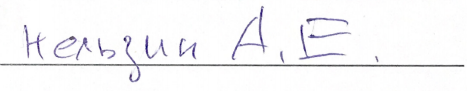 Нельзин А.Е.